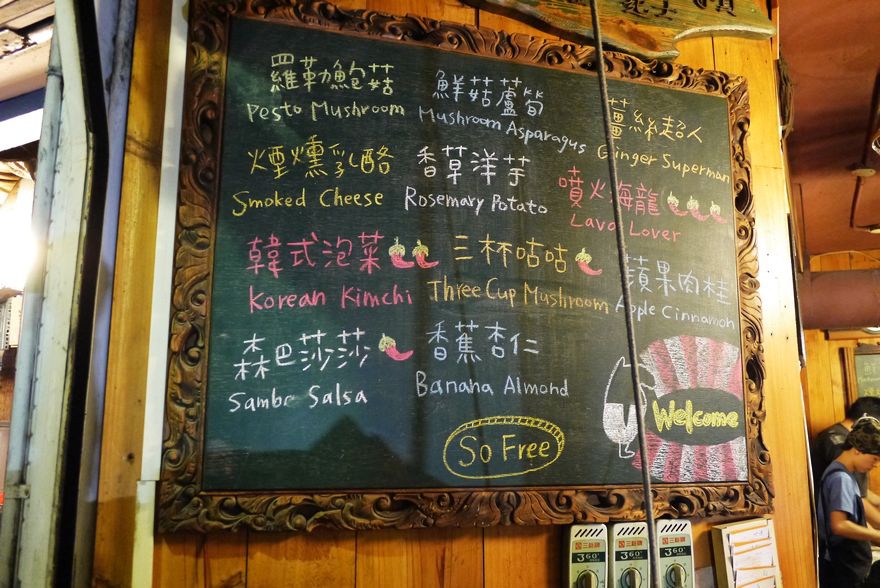 羅勒鮑菇
Pesto Mushroom
鮮菇蘆筍
Mushroom Asparagus
薑絲超人
Ginger Superman
煙燻乳酪
Smoked Cheese
香草洋芋
Rosemary Potato
噴火海龍
Lava Lover
韓式泡菜
Korean Kimchi
三杯咕咕
Three Cup Mushroom
蘋果肉桂
Apple Cinnamon
森巴莎莎
Samba Salsa
香蕉杏仁
Banana Almond
So Free
Welcome
360°
360°
360°